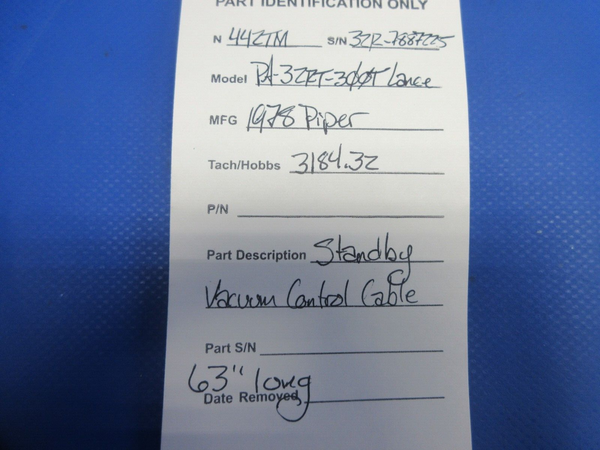 PART IDENTIFICATION ONLY
N 442TM S/N 32R-7887225
Model PA-32RT-300T Lance
MFG 1978 Piper
Tach/Hobbs 3184.32
P/N
Part Description Standby
Vacuum Control Cable
Part S/N
63" long
Date Removed